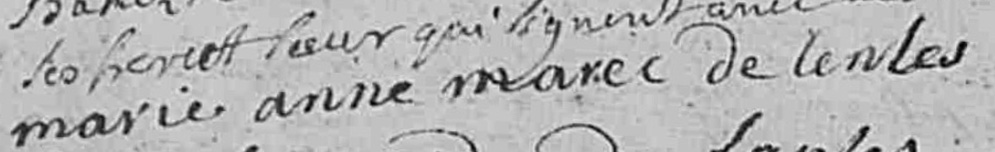 ses frere et soeur qui signent avec
marie anne marec de lenles